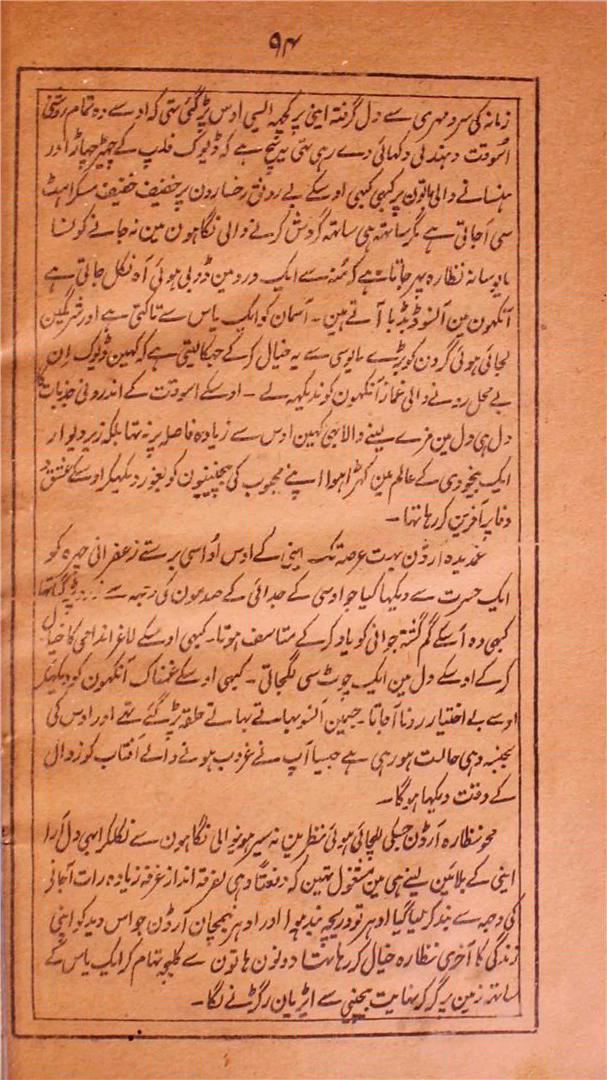 ۹۴
زمانہ کی سرد مہری سے دل گرفتہ اینی پر کچہہ ایسی اوس پڑ گئی تہی کہ اوسے وہ تمام روشنی
اسوقت دہندلی دکہائی دے رہی تہی یہ سچ ہے کہ ڈیوک فلپ کے چہیڑ چہاڑ اور
ہنسانے والی باتون پر کبہی کبہی اوسکے بے رونق رخسارون پر خفیف خفیف مسکراہٹ
سی آجاتی ہے مگر ساتہہ ہی ساتہہ گردش کرنے والی نگاہون مین نہ جانے کونسا
مایوسانہ نظارہ پہر جاتا ہے کہ مُنہ سے ایک درد مین ڈوبی ہوئی آہ نکل جاتی ہے
آنکہون مین آنسو ڈبڈبا آتے ہین۔ آسمان کو ایک یاس سے تاکتی ہے اور شرمگین
لجائی ہوئی گردن کو بڑے مایوسی سے یہ خیال کر کے جہکا لیتی ہے کہ کہین ڈیوک اِن
بے محل رونے والی غماز آنکہون کو نہ دیکہہ لے۔ اوسکے اسوقت کے اندرونی جذبات کا
دل ہی دل مین مزے لینے والا بہی کہین اوس سے زیادہ فاصلہ پر نہ تہا بلکہ زیر دیوار
ایک بیخودی کے عالم مین کہڑا ہوا اپنے محبوب کی بیچینیون کو بغور دیکہکر اوسکے عشق و
وفا پر آفرین کر رہا تہا۔
غمدیدہ آرڈن بہت عرصہ تک اینی کے اوس اُداسی برستے زعفرانی چہرہ کو
ایک حسرت سے دیکہا کیا جو اوسی کے جدائی کے صدمون کی وجہ سے زرد پڑ گیا تہا
کبہی وہ اُسکے گم گشتہ جوانی کو یاد کر کے متاسف ہوتا۔ کبہی اوسکے لاغر اندامی کا خیال
کر کے اوسکے دل مین ایک چوٹ سی لگجاتی۔ کبہی اوسکے غمناک آنکہون کو دیکہکر
اوسے بے اختیار رونا آجاتا۔ جنمین آنسو بہاتے بہاتے حلقہ پڑ گئے تہے اور اوس کی
بجنسہ وہی حالت ہو رہی ہے جیسا آپ نے غروب ہونے والے آفتاب کو زوال
کے وقت دیکہا ہوگا۔
محو نظارہ آرڈن جسکی للچائی ہوئی نظرین نہ سیر ہونیوالی نگاہون سے نکلکر ابہی دل آرا
اینی کے بلائین لینے ہی مین مشغول تہین کہ دفعتاً وہی تفرقہ انداز غرفہ زیادہ رات آجانی
کی وجہ سے بند کر لیا گیا اودہر تو دریچہ بند ہوا اور ادہر نیمجان آرڈن جو اس دید کو اپنی
زندگی کا آخری نظارہ خیال کر رہا تہا دونون ہاتون سے کلیجہ تہام کر ایک یاس کے
ساتہہ زمین پر گر کر نہایت بیچینی سے ایڑیان رگڑنے لگا۔